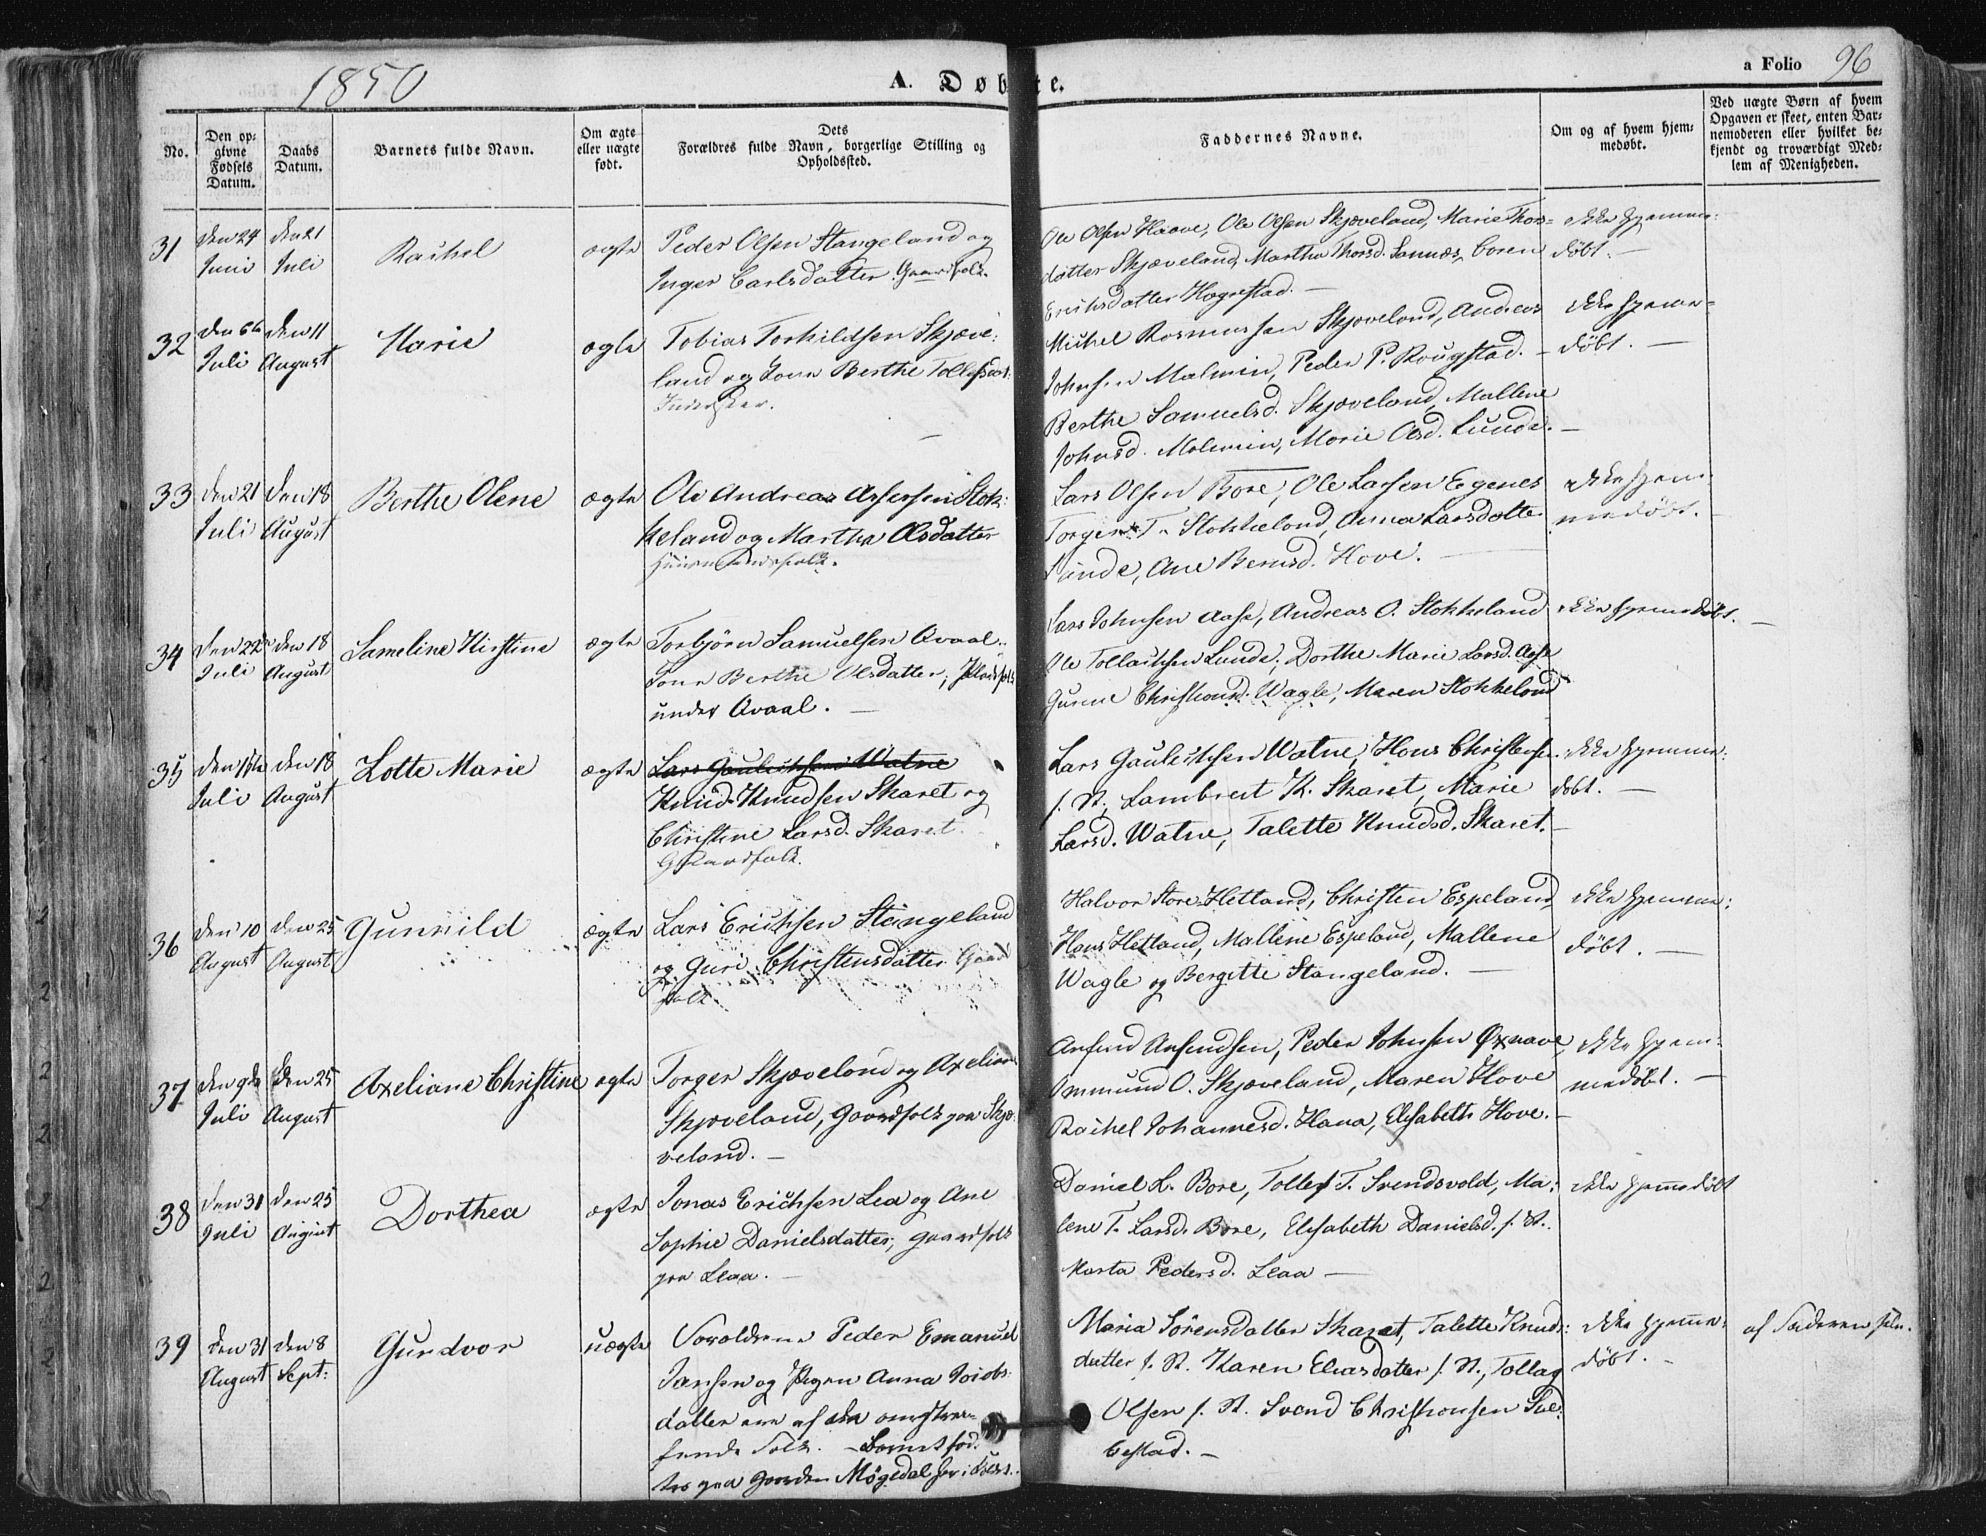 1850
A. Døbte.
a Folio 96
No.
Den op-
givne
Fødsels
Datum.
Daabs
Datum.
Barnets fulde Navn.
Om ægte
eller uægte
født.
Dets
Forældres fulde Navn, borgerlige Stilling og
Opholdssted.
Faddernes Navne.
Om og af hvem hjem-
medøbt.
Ved uægte Børn af hvem
Opgaven er skeet, enten Bar-
nemoderen eller hvilket be-
kjendt og troværdigt Med-
lem af Menigheden.
31
den 24
Juni
den 21
Juli
Rachel
ægte
Peder Olsen Stangeland og
Inger Carlsdatter Gaardfolk.
Ole Olsen Haave, Ole Olsen Skjæveland, Marie Thors-
datter Skjæveland, Martha Thorsd. Sannæs, Coren
Erichsdatter Hognestad. —
ikke hjemme-
døbt. —
32
den 6te
Juli
den 11
August
Marie
ægte
Tobias Torkildsen Skjæve-
land og Kone Berthe Tollefsdat:
Inderster.
Michel Rasmussen Skjæveland, Andreas
Johnsen Malmin, Peder P. Rougstad. —
Berthe Samuelsd. Skjæveland, Mallene
Johnsd. Malmin, Marie Olsd. Lunde. —
ikke hjemme-
døbt. —
33
den 21
Juli
den 18
August
Berthe Olene
ægte
Ole Andreas Assersen Stok-
keland og Martha Olsdatter
Lars Olsen Bore, Ole Larsen Egenes
Torger T. Stokkeland, Anna Larsdatter
Lunde, Ane Berntsd. Hove. —
ikke hjem-
medøbt. —
34
den 22
Juli
den 18
August
Sameline Kirstine
ægte
Torbjörn Samuelsen Avaal.
Kone Berthe Olsdatter, Pladsfolk
under Avaal. —
Lars Johnsen Aase, Andreas O. Stokkeland
Ole Tollachsen Lunde, Dorthe Marie Larsd. Aase
Gurine Christiansd. Wagle, Maren Stokkeland
ikke hjemmedøbt. —
35
den 15de
Juli
den 18
August
Lotte Marie
ægte
Lars Gauleiksen Watne
Knud Knudsen Skaret og
Christine Larsd. Skaret.
Gaardfolk.
Lars Gauleiksen Watne, Hans Christense
f. St., Lambrect K. Skaret, Marie
Larsd. Watne, Talette Knudsd. Skaret. —
ikke hjemme-
døbt. —
36
den 10
August
den 25
August
Gunvild
ægte
Lars Erichsen Stangeland
og Guri Christensdatter Gaard
folk.
Halvor Store-Hetland, Christen Espeland,
Hans Hetland, Mallene Espeland, Mallene
Wagle og Bergitte Stangeland. —
ikke hjemme-
døbt. —
37
den 9de
Juli
den 25
August
Axeliane Christine
ægte
Torger Skjæveland og Axeliane
Skjæveland, Gaardfolk paa Skjæ-
veland. —
Anfind Anfindsen, Peder Johnsen Øxnave,
Ommund O. Skjæveland, Maren Hove
Rachel Johannesd. Hana, Elisabeth Hove. —
ikke hjem-
medøbt. —
38
den 31
Juli
den 25
August
Dorthea
ægte
Jonas Erichsen Lea og Ane
Sophie Danielsdatter, Gaardfolk
paa Leaa. —
Daniel L. Bore, Tollef T. Svendsvold, Ma-
lene T. Larsd. Bore, Elisabeth Danielsd. f. St.
Marta Pedersd. Leaa —
ikke hjemmedøbt
39
den 31
August
den 8
Sept:
Gundvor
uægte
Forældrene Peder Emanuel
Jansen og Pigen Anna Jacobs-
datter ere af den omstrei-
fende Folk. — Barnet fød-
tes paa Gaarden Møgedal her i
Maria Sörensdatter Skaret, Talette Knuds-
datter f. St. Karen Eliasdatter f. St., Tollag
Olsen f. St. Svend Christiansen Sve-
bestad. —
ikke hjemme-
døbt. —
af Faderen selv.